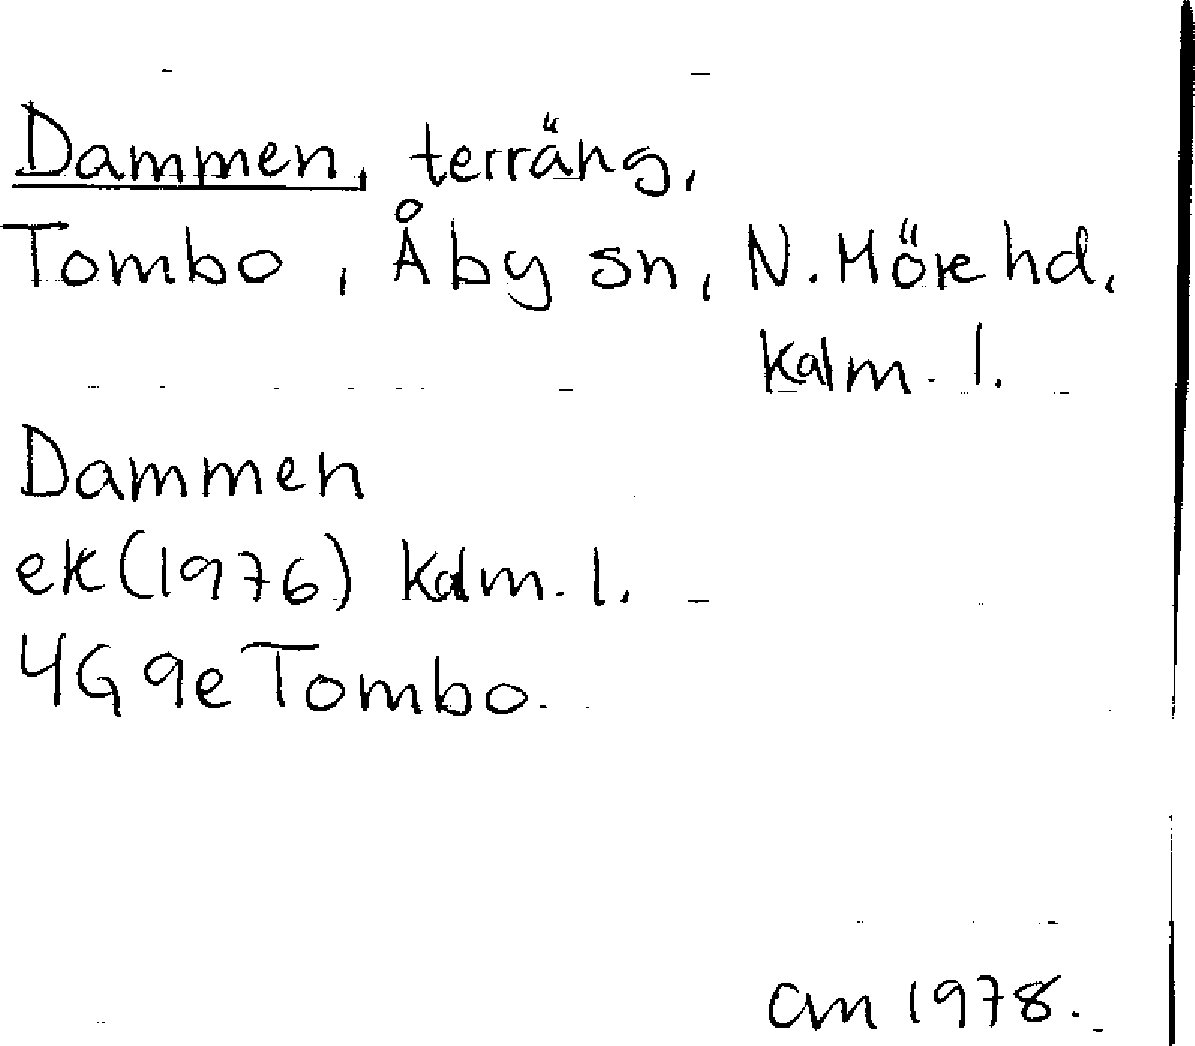 Dammen, terräng,
Tombo, Åby sn, N. Möre hd,
Kalm. l.
Dammen
ek (1976) Kalm. l.
4G 9e Tombo.
am 1978.